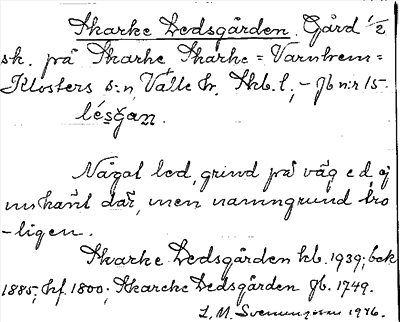 Skarke Ledsgården. Gård 1/2
sk. på Skarke Skarke = Varnhem =
Klosters s:n, Valle hr, Skb. l., – Jb nr 15.
lésgan.
Något led, grind på väg e.d. ej
men namngrund tro
-ligen.
Skarke Ledsgården kb. 1939; bok
1885; hf. 1800; Skarcke Ledsgården jb. 1749.
L. M. Svenungsson 1946.